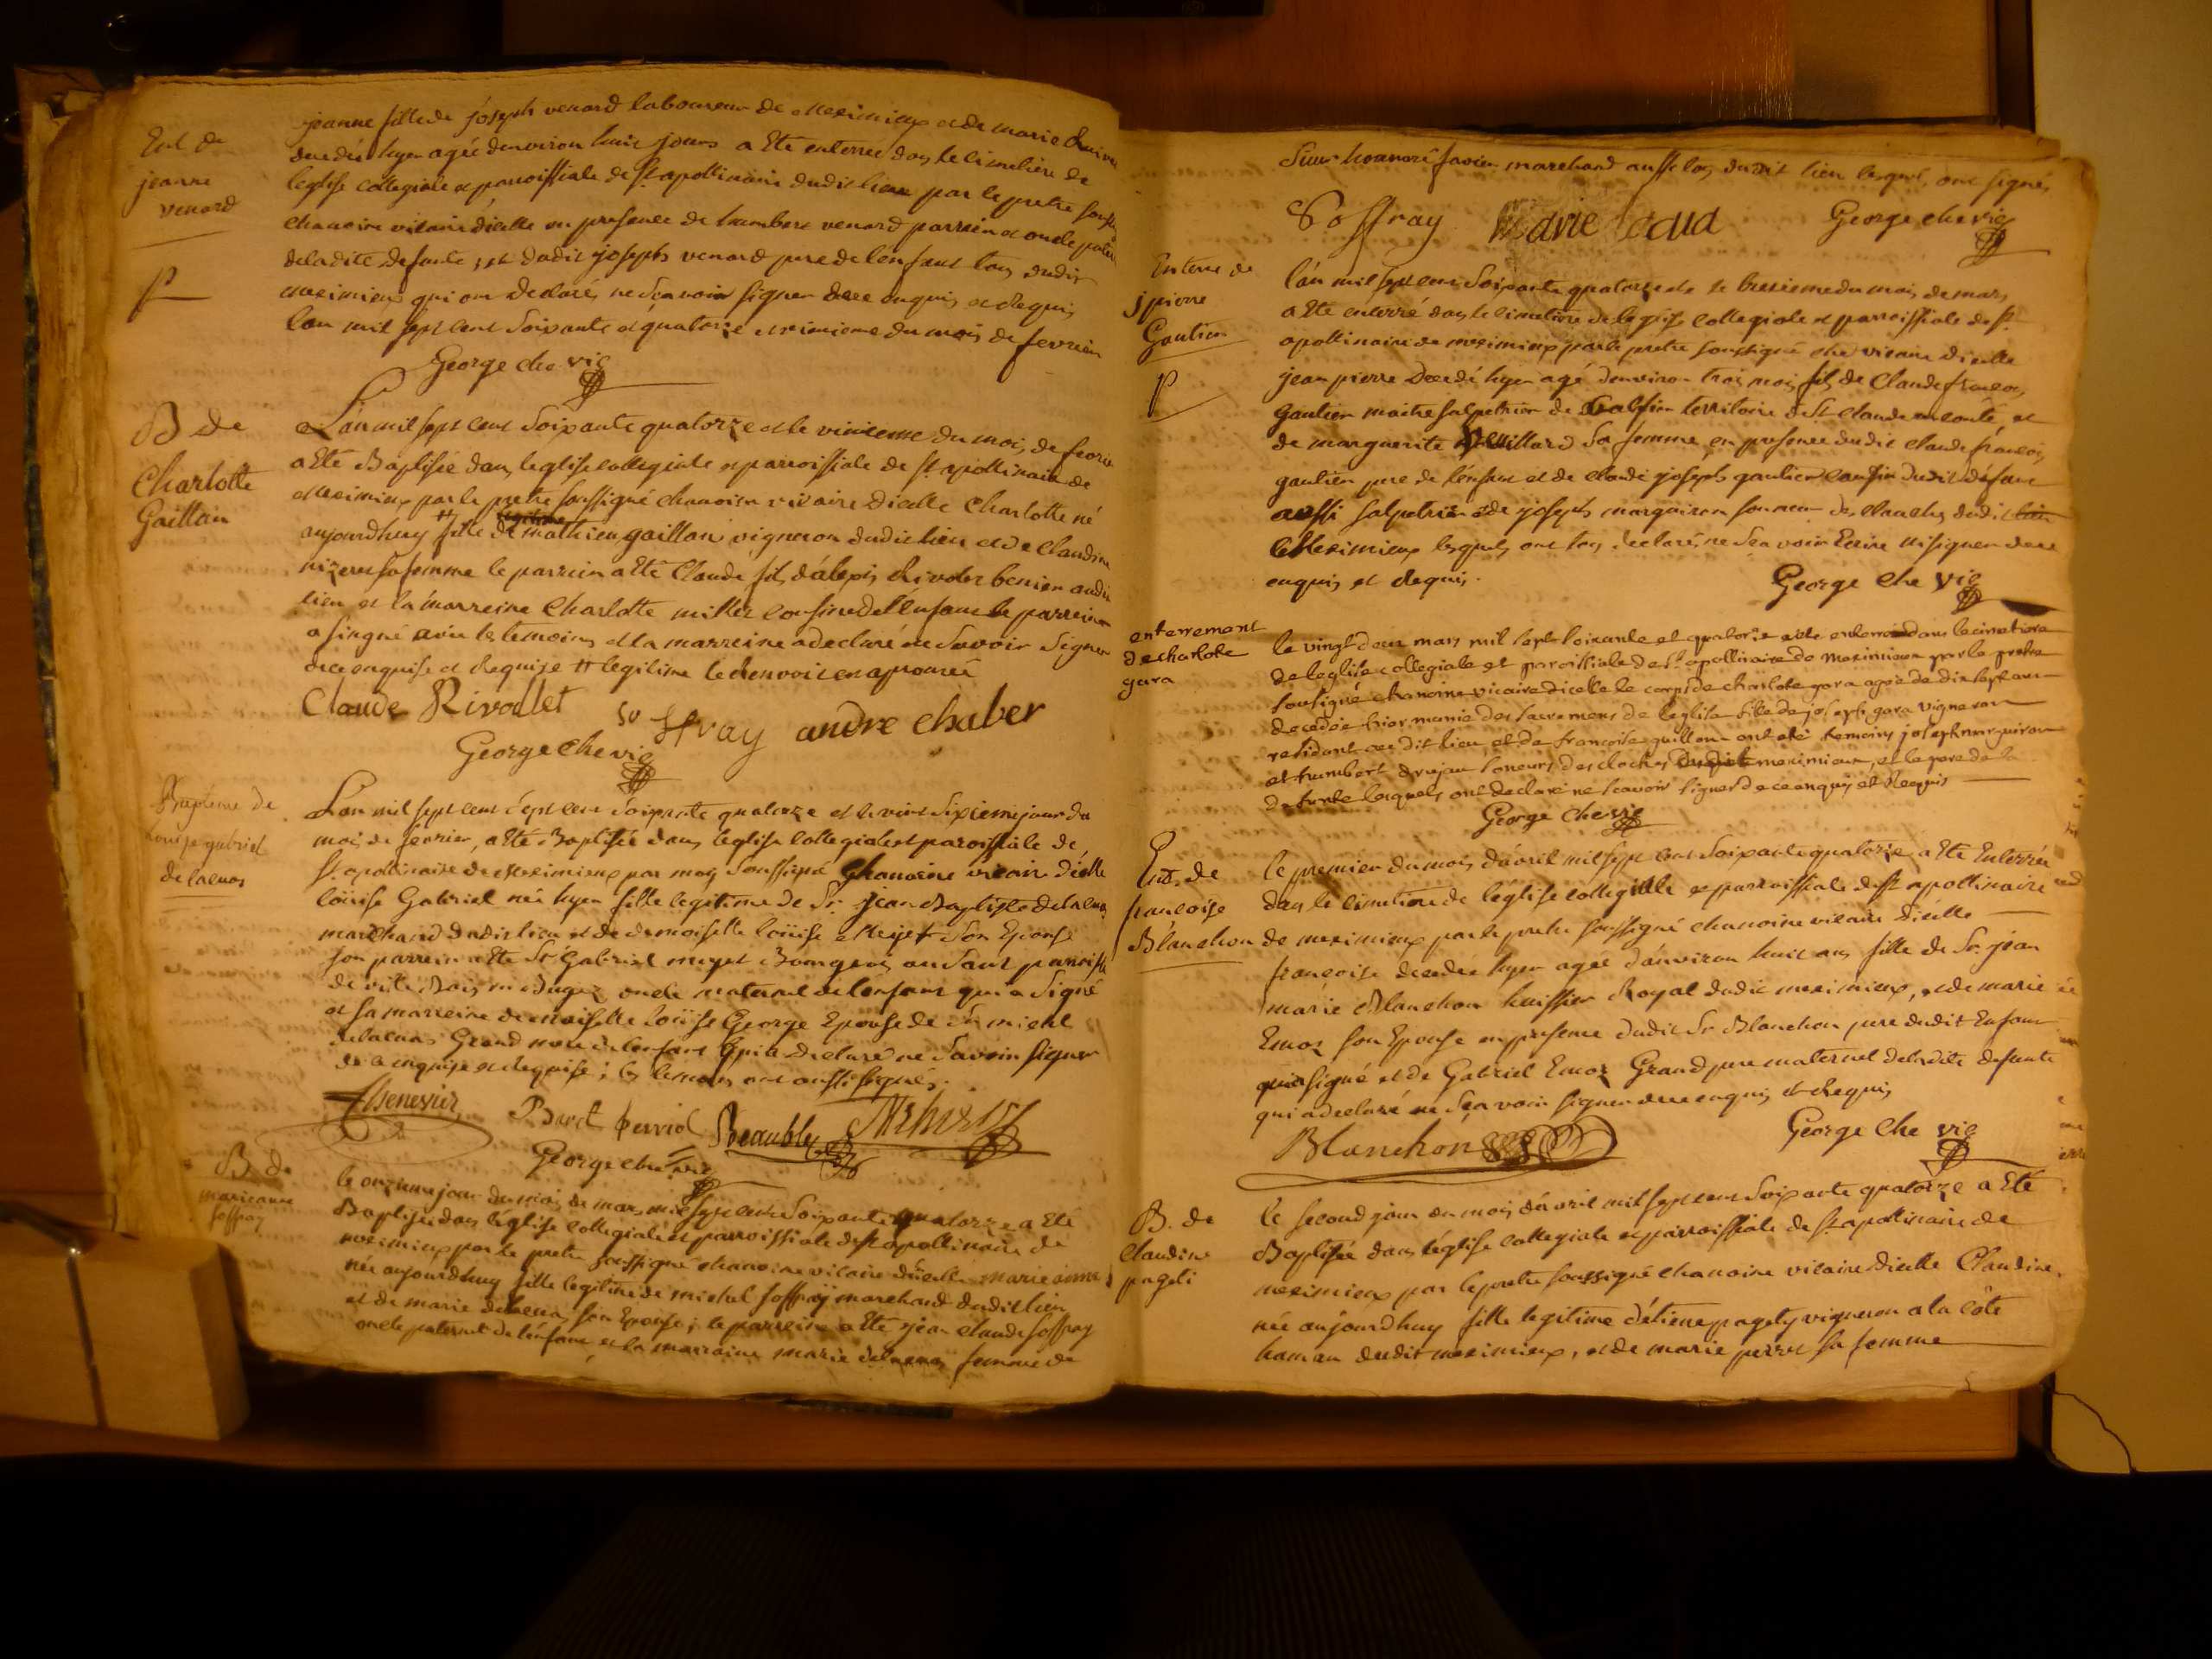 Ent de
jeanne
venard
jeanne fille de joseph venard laboureur de Meximieux et de marie
decedée hyer agée denviron huit jours a Eté enterrée dans le cimetiere de
leglise collegiale et parroissiale de st apollinaire dudit lieu par le pretre
chanoine vicaire dicelle en presence de humbert venard parrein et oncle
deladite defunte, et dudit joseph venard pere de lénfant tous dudit
meximieux qui ont declaré, ne scavoir signer dece enquis et Requis
lan mil sept cent soixante et quatorze et du mois de fevrier
George che vic
B de
Charlotte
Gaillan
L'an mil sept cent soixante quatorze et le vintieme du mois de
a Eté Baptisée dans leglise collegiale et parroissiale de st apollinaire de
Meximieux par le pretre soussigné chanoine vicaire dicelle Charlotte né
aujourdhuy # fille de mathieu gaillan vigneron dudit lieu et de claudine
sa femme le parrein a Eté Claude fils d'alexis Rivolet
lieu et la marreine Charlotte cousine de l'Enfant le parrein
a signé avec les temoins et la marreine a declaré ne savoir signer
dece enquise et Requise # legitime le Renvoit en aprouvée
Claude Rivollet soffray andre chaber
George che vic
Baptême de
Louise gabriel
delacuas
L'an mil sept cent sept cent soixante quatorze et le vint sixieme jour du
mois de fevrier, a Eté Baptisée dans leglise collegiale et paroissiale de
st. apollinaire de Meximieux par moy soussigné chanoine vicair dicelle
loüise Gabriel née hyer fille legitime de Sr. jean Baptiste
marchand dudit lieu et de demoiselle loüise Mejet son Epouse
son parrein a Eté Sr Gabriel mejet Bourgeois
en Bugey oncle maternel de lénfant qui a signé
et sa marreine demoiselle loüise George Epouse de Sr michel
delacuas Grand mere de lenfant qui a declaré ne savoir signer
de ce enquise et Requise; les temoins ont aussi signés.
Benevix
George che vic
B. de
marieanne
soffray
le onzieme jour du mois de mars mil sept cent soixante quatorze a Eté
Baptisée dans l'église collegiale et parroissiale de st apollinaire de
meximieux par le pretre soussigné chanoine vicaire dicelle marie anne
née aujourdhuy fille legitime de michel soffray marchand dudit lieu
et de marie delacua son Epouse; le parreine a Eté jean claude soffray
oncle paternel de l'enfant et la marraine marie femme de
Sieur honnoré marchand aussi tous dudit lieu lesquels ont signés
Soffray Marie George che vic
Enterre de
jpierre
Gautier
l'an mil sept cent soixante quatorze et le treisieme du mois de mars
a Eté enterré dans le cimetiere de leglise collegiale et parroissiale de st.
apollinaire de meximieux par le pretre soussigné che vicaire dicelle
jean pierre decedé hyer agé denviron trois mois fils de Claude françois
Gautier maitre salpetrier de territoire de St. claude en conté, et
de marguerite sa femme, en presence dudit claude françois
gautier pere de lénfant et de claude joseph gautier cousin dudit défunt
aussi salpetrier et de joseph marguiron sonneur des cloches dudit
Meximieux lesquels ont tous declaré, ne sçavoir Ecrire ni signer dece
enquis et Requis.
George che vic
enterrement
de charlote
gara
le vingt deux mars mil sept soixante et quatorze a été enterrée dans le cimetiere
de leglise collegiale et paroissiale de St. apollinaire de meximieux par le pretre
sousigné chanoine vicaire dicelle le corps de charlote gara agée de dix sept ans
decedée hier munie des sacremens de leglise fille de joseph gara vigneron
residant au dit lieu, et de francoise guillon ont été temoins joseph marguiron
et humbert drujan soneurs des cloches dudit meximieux, et le pere de la
defunte lesquels ont declaré ne scavoir signer de ce enquis et Requis
George che vic
Ent. de
francoise
Blanchon
le premier du mois d'avril mil sept cent soixante quatorze a Eté Enterrée
dans le cimetiere de l'église collegialle et parroissiale de st apollinaire
de meximieux par le pretre soussigné chanoine vicaire dicelle
françoise decedée hyer agée d'anviron huit ans fille de Sr. jean
marie Blanchon huissier Royal dudit meximieux, et de marie
Emoz son Epouse en presence dudit Sr Blanchon pere dudit Enfant
qui a signé et de Gabriel Emoz Grand pere maternel deladite defunte
qui a declaré ne sçavoir signer dece enquis et Requis
Blanchon George che vic
B. de
Claudine
pageti
le second jour du mois d'avril mil sept cent soixante quatorze a Eté
Baptisée dans l'église collegiale et parroissiale de st apollinaire de
meximieux par le pretre soussigné chanoine vicaire dicelle Claudine
née aujourdhuy fille legitime d'étiene pagety vigneron a la côte
hameau dudit meximieux, et de marie perret sa femme